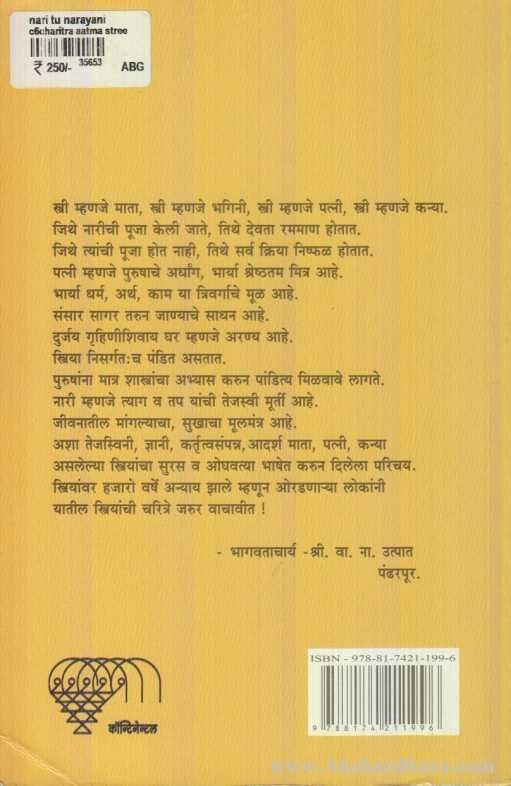 nari tu narayani
c6charitra aatma stree
₹ 250/- 35653 ABG
स्त्री म्हणजे माता, स्त्री म्हणजे भगिनी, स्त्री म्हणजे पत्नी, स्त्री म्हणजे कन्या.
जिथे नारीची पूजा केली जाते, तिथे देवता रममाण होतात.
जिथे त्यांची पूजा होत नाही, तिथे सर्व क्रिया निष्फळ होतात.
पत्नी म्हणजे पुरुषाचे अर्धांग, भार्या श्रेष्ठतम मित्र आहे.
भार्या धर्म, अर्थ, काम या त्रिवर्गाचे मूळ आहे.
संसार सागर तरुन जाण्याचे साधन आहे.
दुर्जय गृहिणीशिवाय घर म्हणजे अरण्य आहे.
स्त्रिया निसर्गत:च पंडित असतात.
पुरुषांना मात्र शास्त्रांचा अभ्यास करुन पांडित्य मिळवावे लागते.
नारी म्हणजे त्याग व तप यांची तेजस्वी मूर्ती आहे.
जीवनातील मांगल्याचा, सुखाचा मूलमंत्र आहे.
अशा तेजस्विनी, ज्ञानी, कर्तृत्वसंपन्न,आदर्श माता, पत्नी, कन्या
असलेल्या स्त्रियांचा सुरस व ओघवत्या भाषेत करुन दिलेला परिचय.
स्त्रियांवर हजारो वर्षे अन्याय झाले म्हणून ओरडणाऱ्या लोकांनी
यातील स्त्रियांची चरित्रे जरुर वाचावीत !
- भागवताचार्य -श्री. वा. ना. उत्पात
पंढरपूर.
ISBN - 978-81-7421-199-6
9 788174 211996
कॉन्टिनेन्टल